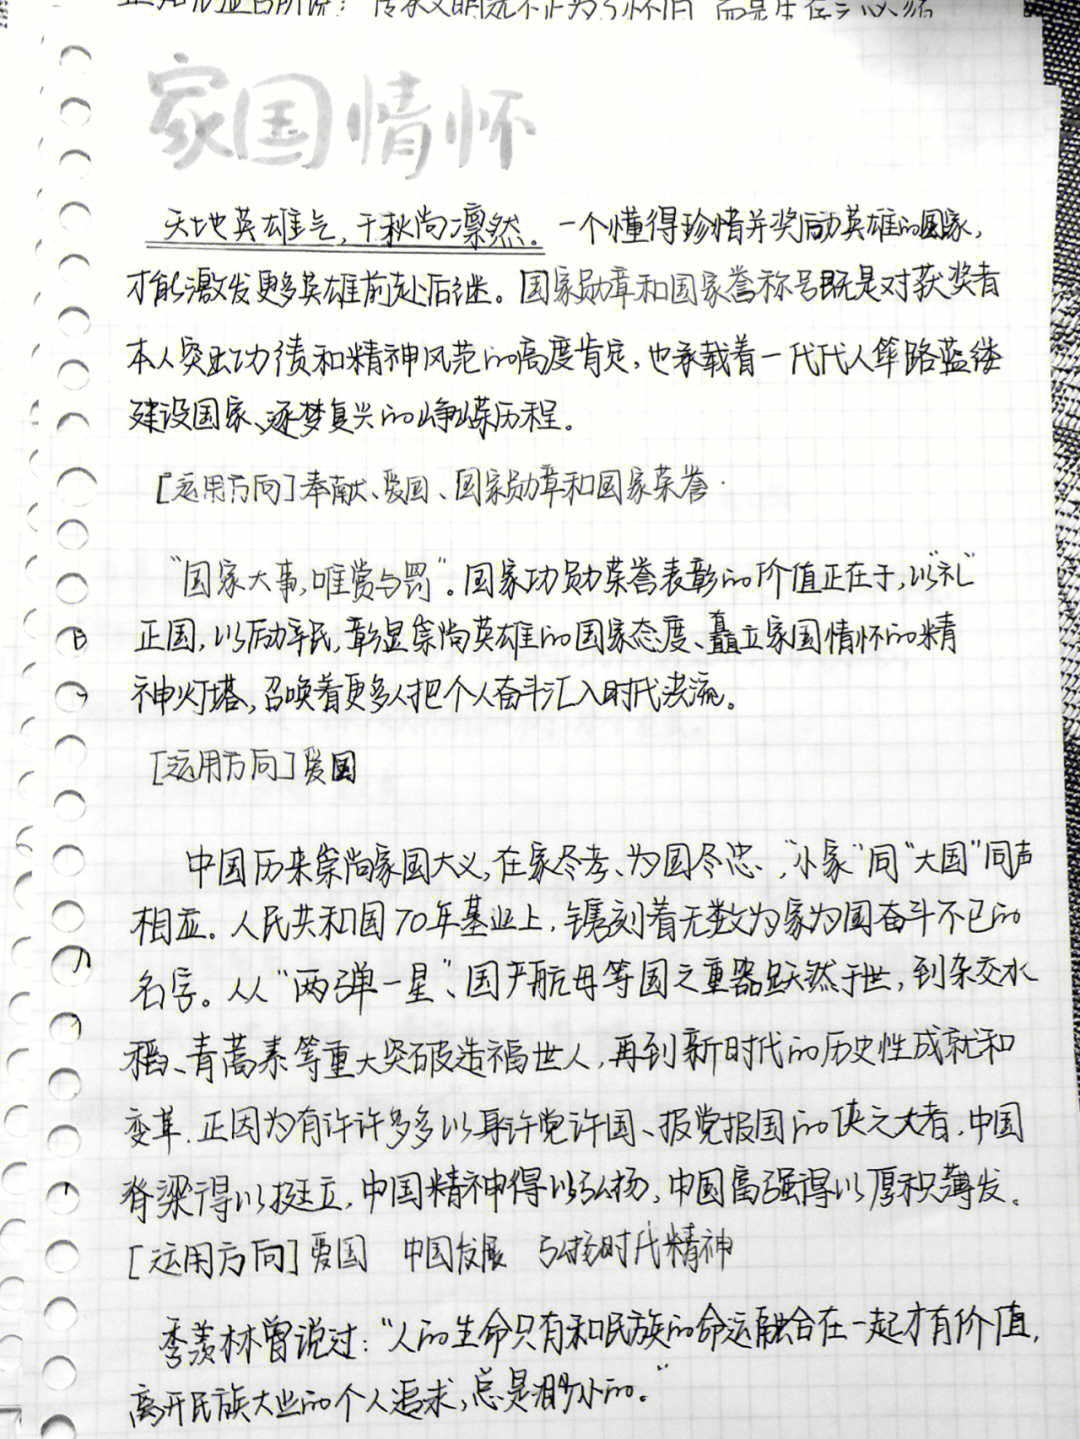 传承文明既不止为了怀旧,而是生存之必须
家国情怀
天地英雄气,千秋尚凛然。一个懂得珍惜并奖励英雄的国家,
才能激发更多英雄前赴后继。国家勋章和国家誉称号既是对获奖者
本人突出功绩和精神风范的高度肯定,也承载着一代代人筚路蓝缕
建设国家、逐梦复兴的峥嵘历程。
[运用方向]奉献、爱国、国家勋章和国家荣誉.
“国家大事,唯赏与罚”。国家功勋荣誉表彰的价值正在于,以“礼”
正国,以励率民,彰显崇尚英雄的国家态度、矗立家国情怀的精
神灯塔,召唤着更多人把个人奋斗汇入时代洪流。
[运用方向]爱国
中国历来崇尚家国大义,在家尽孝、为国尽忠、,“小家”同“大国”同声
相应。人民共和国70年基业上,镌刻着无数为家为国奋斗不已的
名字。从“两弹一星”、国产航母等国之重器跃然于世,到杂交水
稻、青蒿素等重大突破造福世人,再到新时代的历史性成就和
变革.正因为有许许多多以身许党许国、报党报国的侠之大者,中国
脊梁得以挺立,中国精神得以弘扬,中国富强得以厚积薄发。
[运用方向]爱国 中国发展 弘扬时代精神
季羡林曾说过:“人的生命只有和民族的命运融合在一起才有价值,
离开民族大业的个人追求,总是渺小的。”